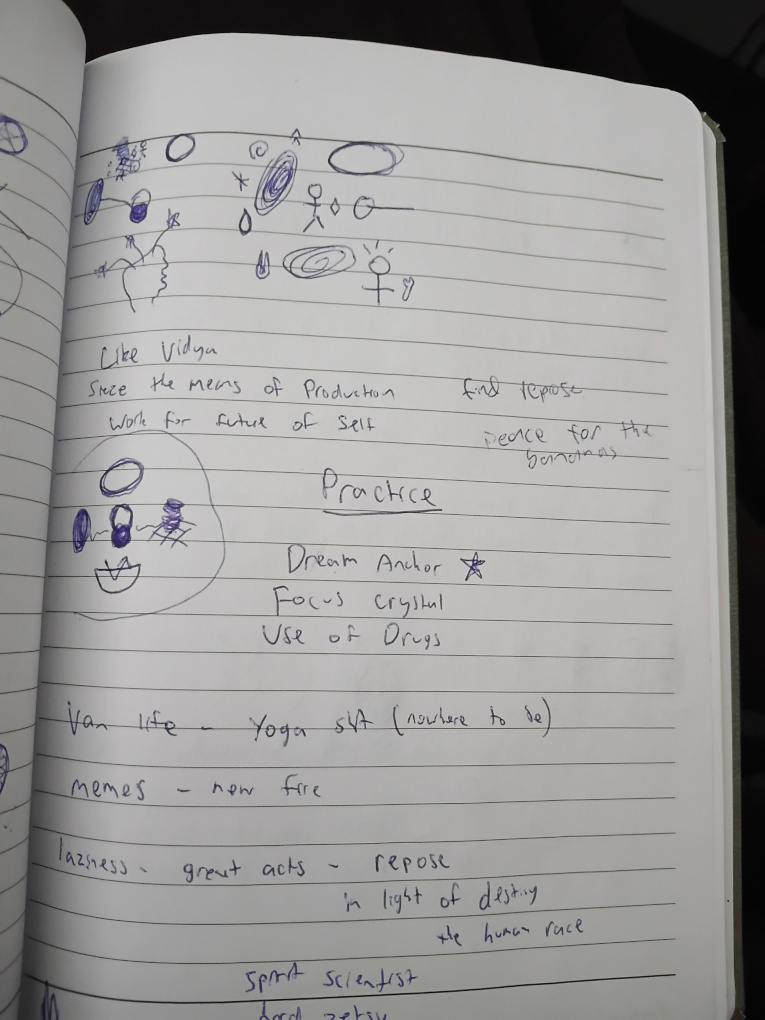 Like Vidya
Sieze the means of Production
find repose
Work for future of self
peace for the
bananas
Practice
Dream Anchor
Focus crystal
Use of Drugs
Van life - Yoga shit (nowhere to be)
memes - new fire
laziness - great acts - repose
in light of destiny
the human race
scientist